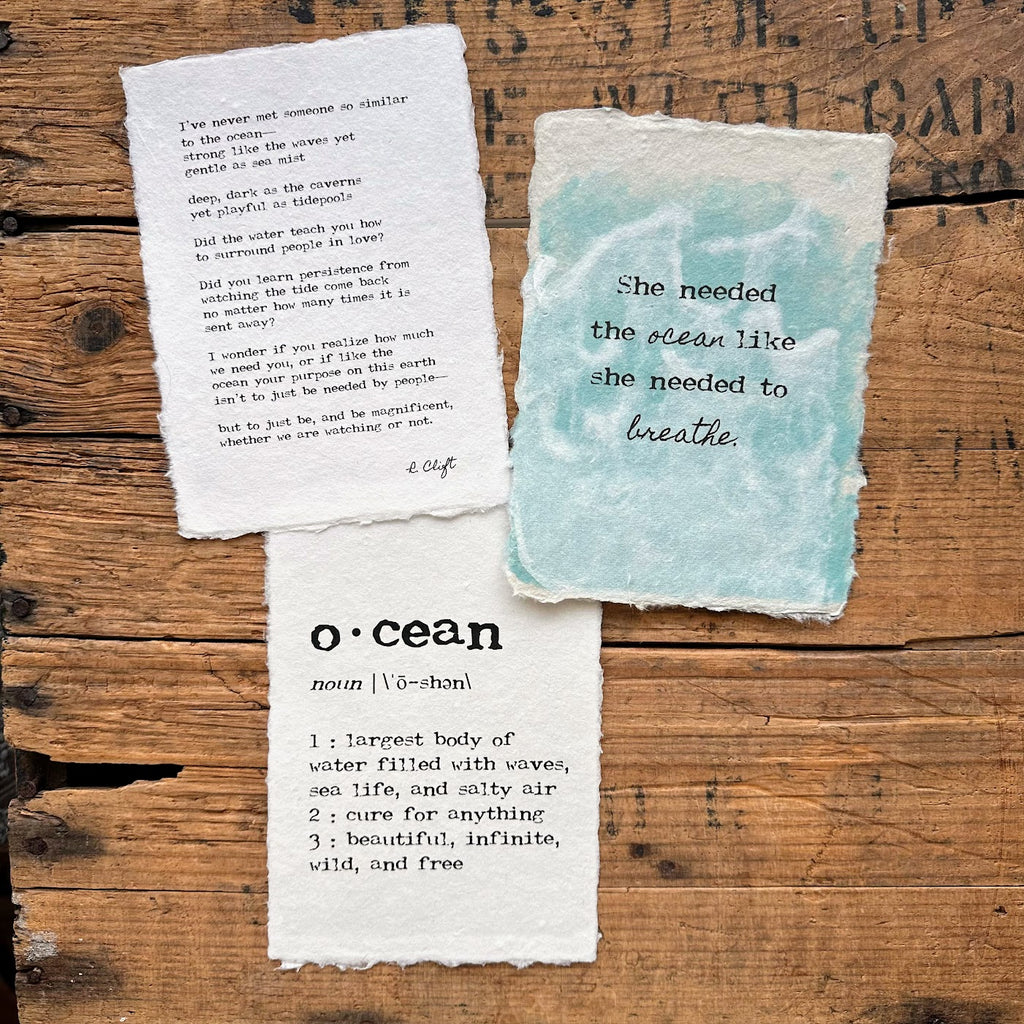 I've never met someone so similar
to the ocean—
strong like the waves yet
gentle as sea mist
deep, dark as the caverns
yet playful as tidepools
Did the water teach you how
to surround people in love?
Did you learn persistence from
watching the tide come back
no matter how many times it is
sent away?
I wonder if you realize how much
we need you, or if like the
ocean your purpose on this earth
isn't to just be needed by people—
but to just be, and be magnificent,
whether we are watching or not.
R. Clift
She needed
the ocean like
she needed to
breathe.
o·cean
noun | \ˈō-shən\
1 : largest body of
water filled with waves,
sea life, and salty air
2 : cure for anything
3 : beautiful, infinite,
wild, and free
WITH